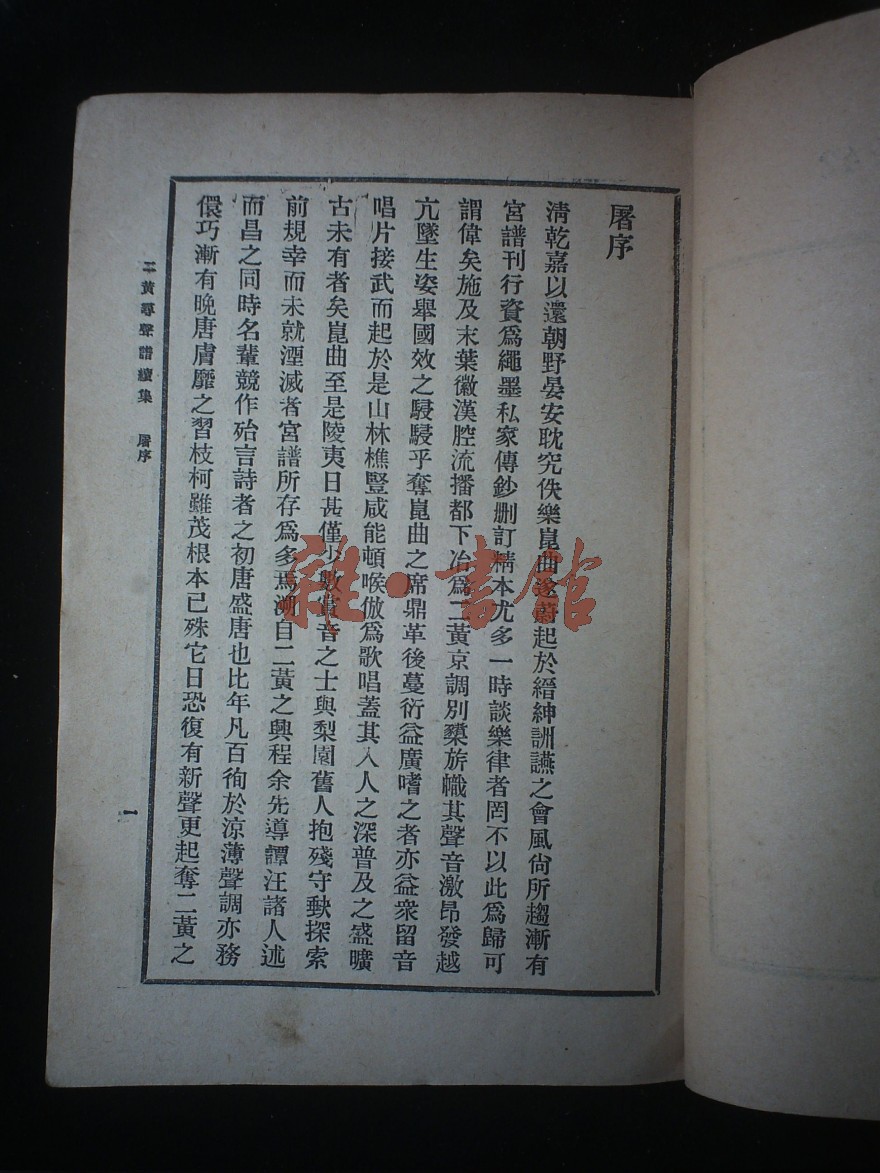 屠序
淸乾嘉以還朝野晏安耽究佚樂崑曲遂蔚起於縉紳詶讌之會風尙所趨漸有
宮譜刊行資爲繩墨私家傳鈔刪訂精本尤多一時談樂律者罔不以此爲歸可
謂偉矣施及末葉徽漢腔流播都下冶爲二黃京調別樹旂幟其聲音激昂發越
亢墜生姿舉國效之駸駸乎奪崑曲之席鼎革後蔓衍益廣嗜之者亦益衆留音
唱片接武而起於是山林樵豎咸能頓喉倣爲歌唱蓋其入人之深普及之盛曠
古未有者矣崑曲至是陵夷日甚僅少數賞音之士與梨園舊人抱殘守缺探索
前規幸而未就湮滅者宮譜所存爲多焉溯自二黃之興程余先導譚汪諸人述
而昌之同時名輩競作殆言詩者之初唐盛唐也比年凡百徇於凉薄聲調亦務
儇巧漸有晚唐膚靡之習枝柯雖茂根本已殊它日恐復有新聲更起奪二黃之
二黃尋聲譜續集 屠序
一
雜·書館